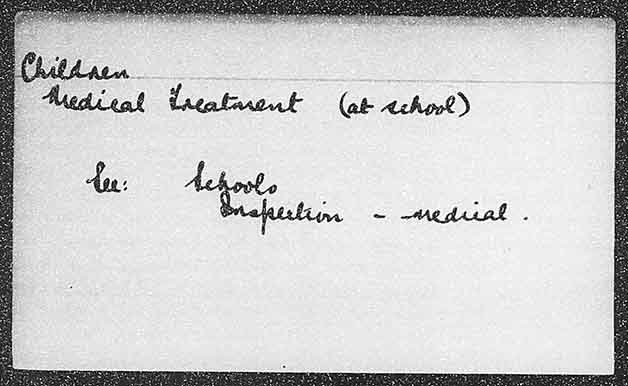 Children
Medical Treatment (at school)
See: Schools
Inspection - medical.